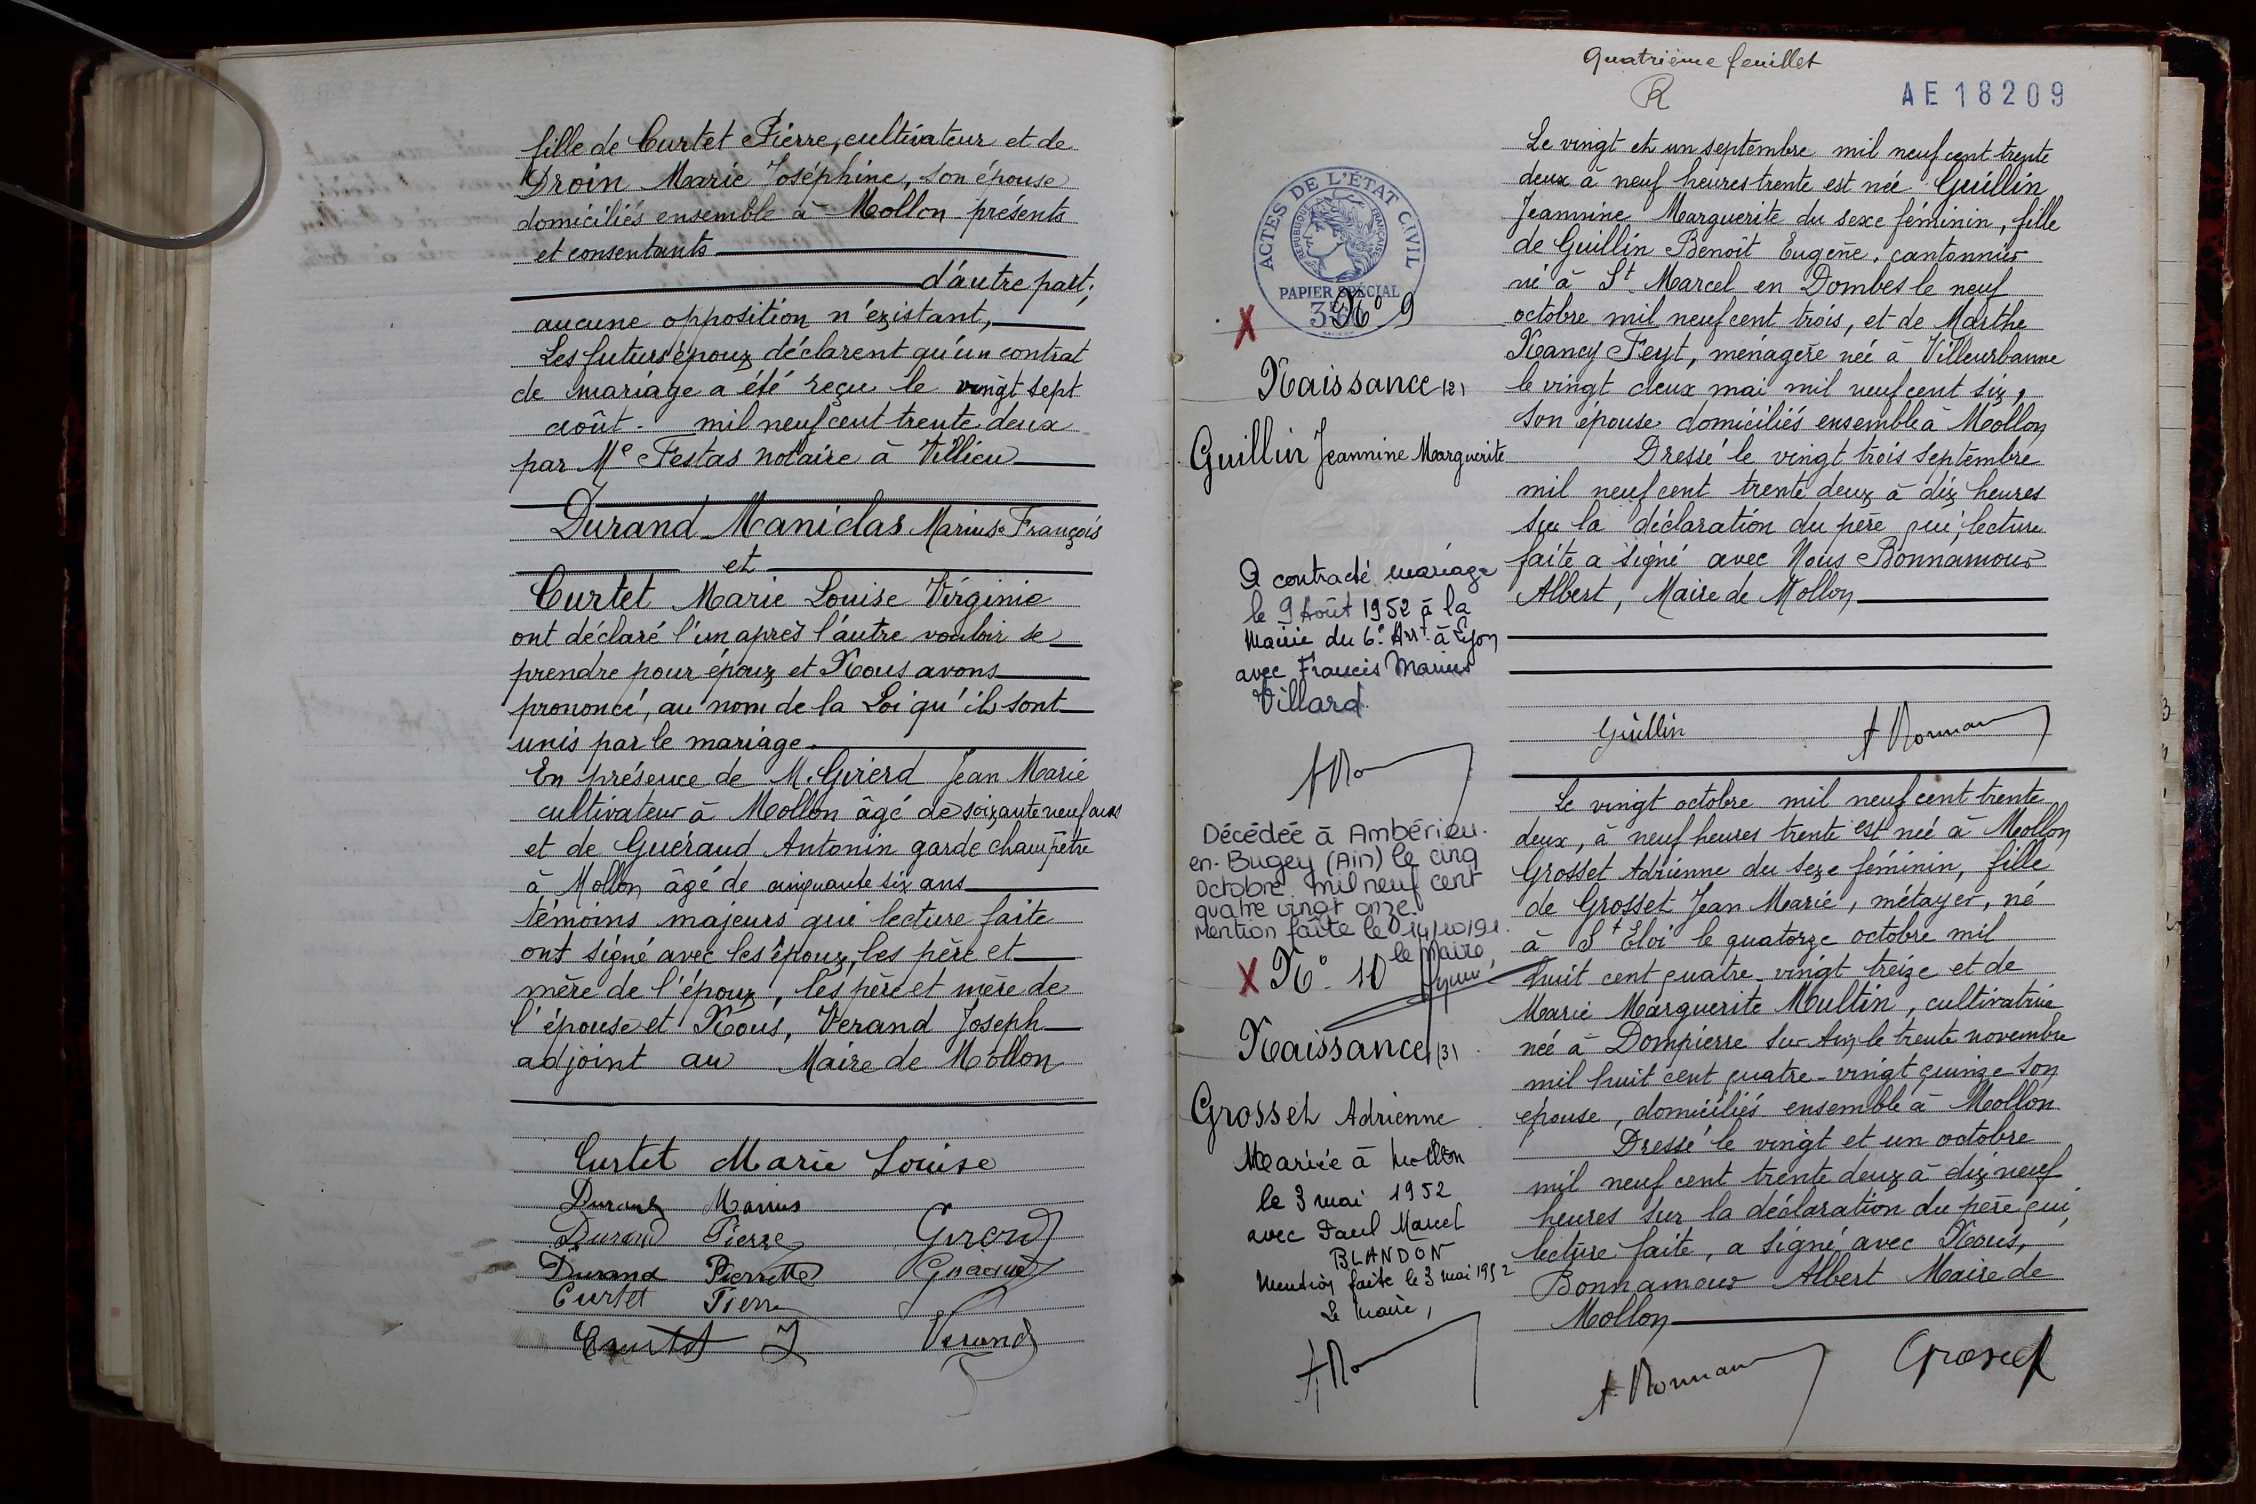 fille de Curtet Pierre, cultivateur et de
Droin Marie Joséphine, son épouse
domiciliés ensemble à Mollon présents
et consentants
d'autre part;
aucune opposition n'existant,
Les futurs époux déclarent qu'un contrat
de mariage a été reçu le vingt sept
août - mil neuf cent trente deux
par Me Festas notaire à Villieu
Durand Maniclas Marius François
et
Curtet Marie Louise Virginie
ont déclaré l'un après l'autre vouloir se
prendre pour époux et Nous avons
prononcé, au nom de la Loi qu'ils sont
unis par le mariage.
En présence de M. Girerd Jean Marie
cultivateur à Mollon âgé de soixante neuf ans
et de Gueraud Antonin garde champêtre
à Mollon âgé de cinquante six ans
témoins majeurs qui lecture faite
ont signé avec les époux, les père et
mère de l'époux, les père et mère de
l'épouse et Nous, Verand Joseph
adjoint au Maire de Mollon
Curtet Marie Louise
Durand Marius
Durand Pierre Girerd
Durand Pierrette Gueraud
Curtet Pierre
Curtet J Verand
Quatrième feuillet
R
AE18209
ACTES DE L'ÉTAT CIVIL
RÉPUBLIQUE FRANÇAISE
PAPIER SPÉCIAL
X No 9
Naissance (2)
Guillin Jeannine Marguerite
A contracté mariage
le 9 Août 1952 à la
Mairie du 6e Arrt à Lyon
avec Francis Marius
Villard
Décédée à Ambérieu-
en-Bugey (Ain) le cinq
Octobre mil neuf cent
quatre vingt onze
Mention faite le 14/10/91.
le Maire,
Le vingt et un septembre mil neuf cent trente
deux à neuf heures trente est née Guillin
Jeannine Marguerite du sexe féminin, fille
de Guillin Benoît Eugène, cantonnier
né à St Marcel en Dombes le neuf
octobre mil neuf cent trois, et de Marthe
Nancy Feyt, ménagère née à Villeurbanne
le vingt deux mai mil neuf cent six,
son épouse domiciliés ensemble à Mollon
Dressé le vingt trois septembre
mil neuf cent trente deux à dix heures
sur la déclaration du père qui, lecture
faite a signé avec Nous Bonnamour
Albert, Maire de Mollon
Guillin A Bonnamour
X No 10
Naissance (3)
Grosset Adrienne
Mariée à Mollon
le 3 mai 1952
avec Paul Marcel
BLANDON
Mention faite le 3 mai 1952
Le Maire,
Le vingt octobre mil neuf cent trente
deux, à neuf heures trente est née à Mollon
Grosset Adrienne du sexe féminin, fille
de Grosset Jean Marie, métayer, né
à St Eloi le quatorze octobre mil
huit cent quatre vingt treize et de
Marie Marguerite Multin, cultivatrice
née à Dompierre sur Ain, le trente novembre
mil huit cent quatre-vingt quinze son
épouse, domiciliés ensemble à Mollon
Dressé le vingt et un octobre
mil neuf cent trente deux à dix neuf
heures sur la déclaration du père qui,
lecture faite, a signé avec Nous,
Bonnamour Albert Maire de
Mollon
A. Bonnamour Grosset